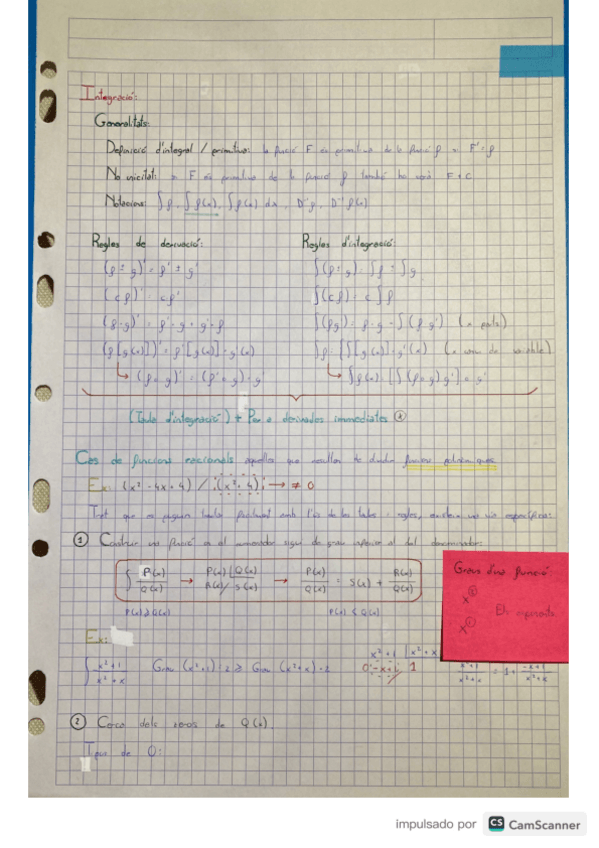 Integració:
Generalitats:
Definició d'integral / primitiva: la funció F és primitiva de la funció f si F' = f
No unicitat: si F és primitiva de la funció f també ho serà F + C
Notacions: ∫f, ∫f(x), ∫f(x) dx, D⁻¹f, D⁻¹f(x)
Regles de derivació:
Regles d'integració:
(f ± g)' = f' ± g'
∫(f ± g) = ∫f ± ∫g
(cf)' = cf'
∫(cf) = c∫f
(f·g)' = f'·g + g'·f
∫(fg') = f·g - ∫(f'g) (x parts)
(f[g(x)])' = f'[g(x)]·g'(x)
(x canvi de variable)
(Taula d'integració) + Per a derivades immediates
Cas de funcions racionals aquelles que resulten de dividir funcions polinòmiques
Ex: (x² - 4x + 4) / (x² + 4) → ≠ 0
① Construir una funció on el numerador sigui de grau inferior al del denominador:
∫ P(x)/Q(x) → P(x) |Q(x) R(x)/ S(x) → P(x)/Q(x) = S(x) + R(x)/Q(x)
P(x) ≥ Q(x)
P(x) < Q(x)
Graus d'una funció
x²
x¹
Els exponents
Ex:
∫ x²+1/x²+x Grau (x²+1) = 2 ≥ Grau (x²+x) = 2
x²+1 |x²+x
0 -x+1/ 1
x²+1/x²+x = 1 + -x+1/x²+x
② Cerca dels zeros de Q(x)
Tipus de Q:
impulsado por CS CamScanner